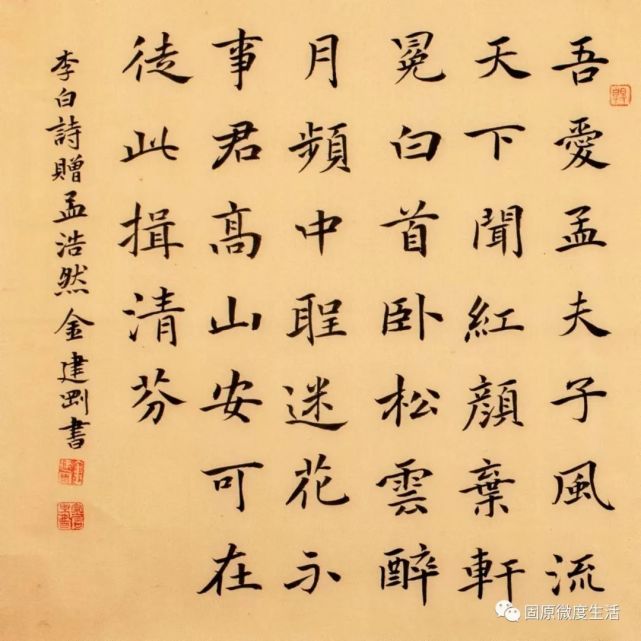 吾愛孟夫子風流
天下聞紅顏棄軒
冕白首卧松雲醉
月頻中聖迷花不
事君高山安可在
徒此揖清芬
李白詩贈孟浩然金建剛書
固原微度生活